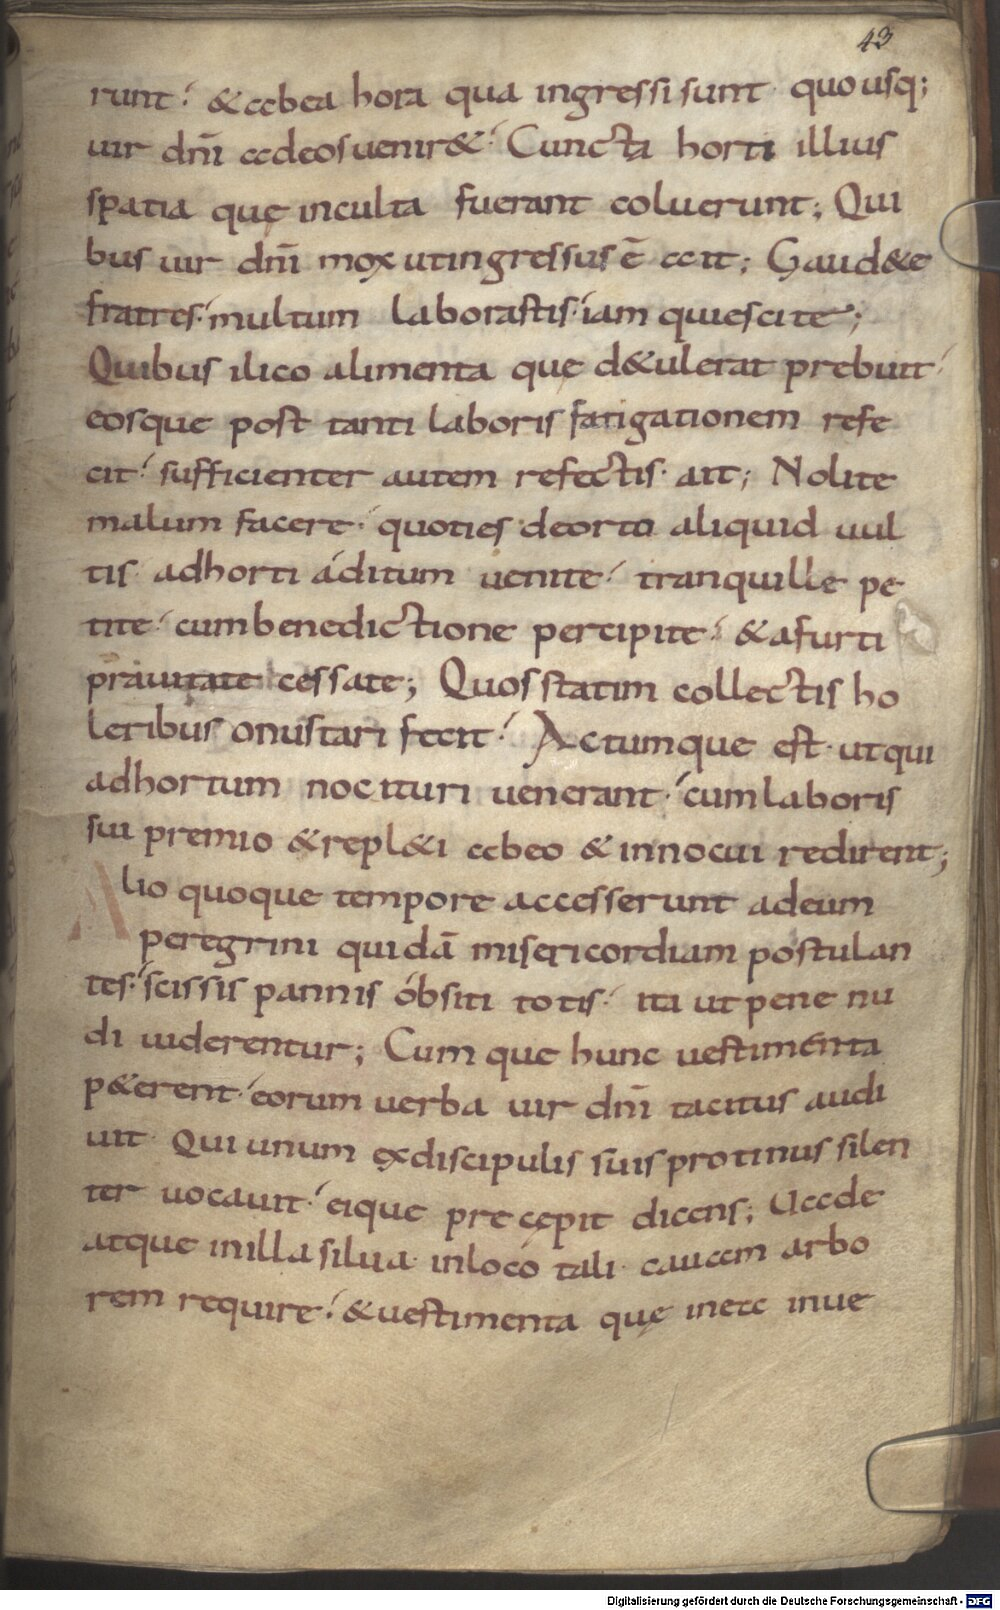 43
runt· & abea hora qua ingressi sunt quousq;
uir dñi adeos uenir&· Cuncta horti illius
spatia quę inculta fuerant coluerunt; Qui
bus uir dñi mox utingressus ē ait; Gaud&e
fratres· multum laborastis· iam quiescite;
Quibus ilico alimenta quę d&ulerat prebuit·
eosque post tanti laboris fatigationem refe
cit· sufficienter autem refectis· ait; Nolite
malum facere· quoties deorto aliquid uul
tis adhorti áditum uenite· tranquille pe
tite· cum benedictione percipite· & afurti
prauitate cessate; Quos statim collectis ho
leribus onustari fecit· Actumque est· utqui
adhortum nocituri uenerant· cum laboris
sui premio & repl&i abeo & innocui redirent;
Alio quoque tempore accesserunt adeum
peregrini quidā misericordiam postulan
tes· scissis pannis óbsiti totis· ita ut pene nu
di uiderentur; Cum que hunc uestimenta
p&erent· eorum uerba uir dñi tacitus audi
uit· Qui unum ex discipulis suis protinus silen
ter uocauit· eique pre cępit dicens; Uade
atque inilla silua· inloco tali· cauam arbo
rem require· & uestimenta quę inea inue
Digitalisierung gefördert durch die Deutsche Forschungsgemeinschaft - DFG